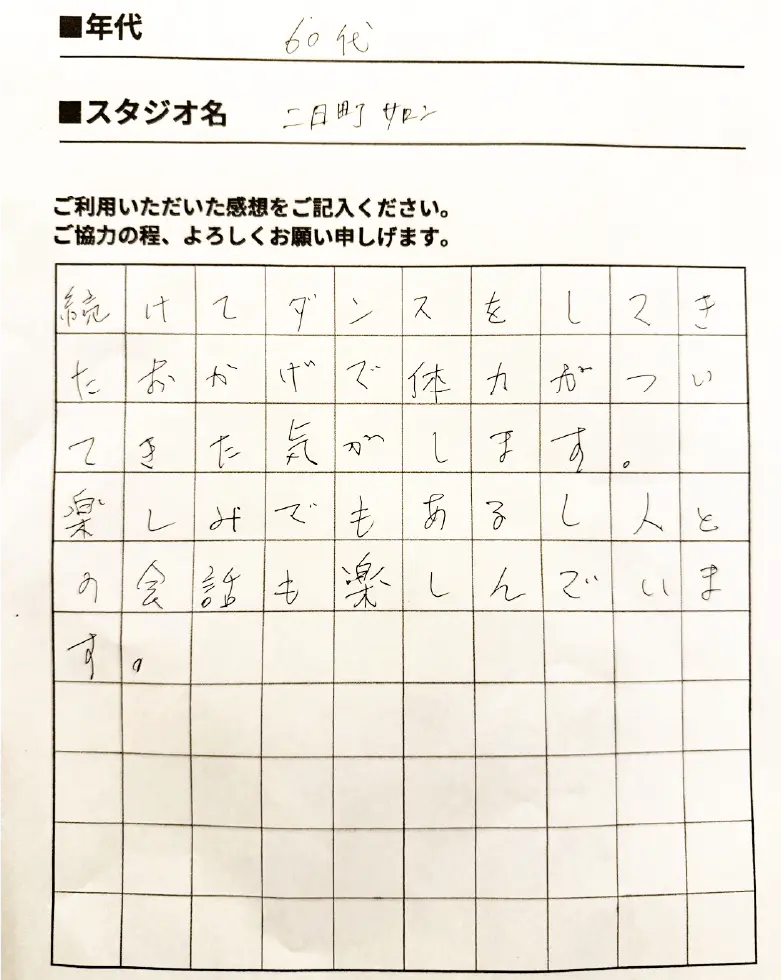 ■年代 60代
■スタジオ名 二日町サロン
ご利用いただいた感想をご記入ください。
ご協力の程、よろしくお願い申しげます。
続けてダンスをしてき
たおかげで体力がつい
てきた気がします。
楽しみでもあるし人と
の会話も楽しんでいま
す。